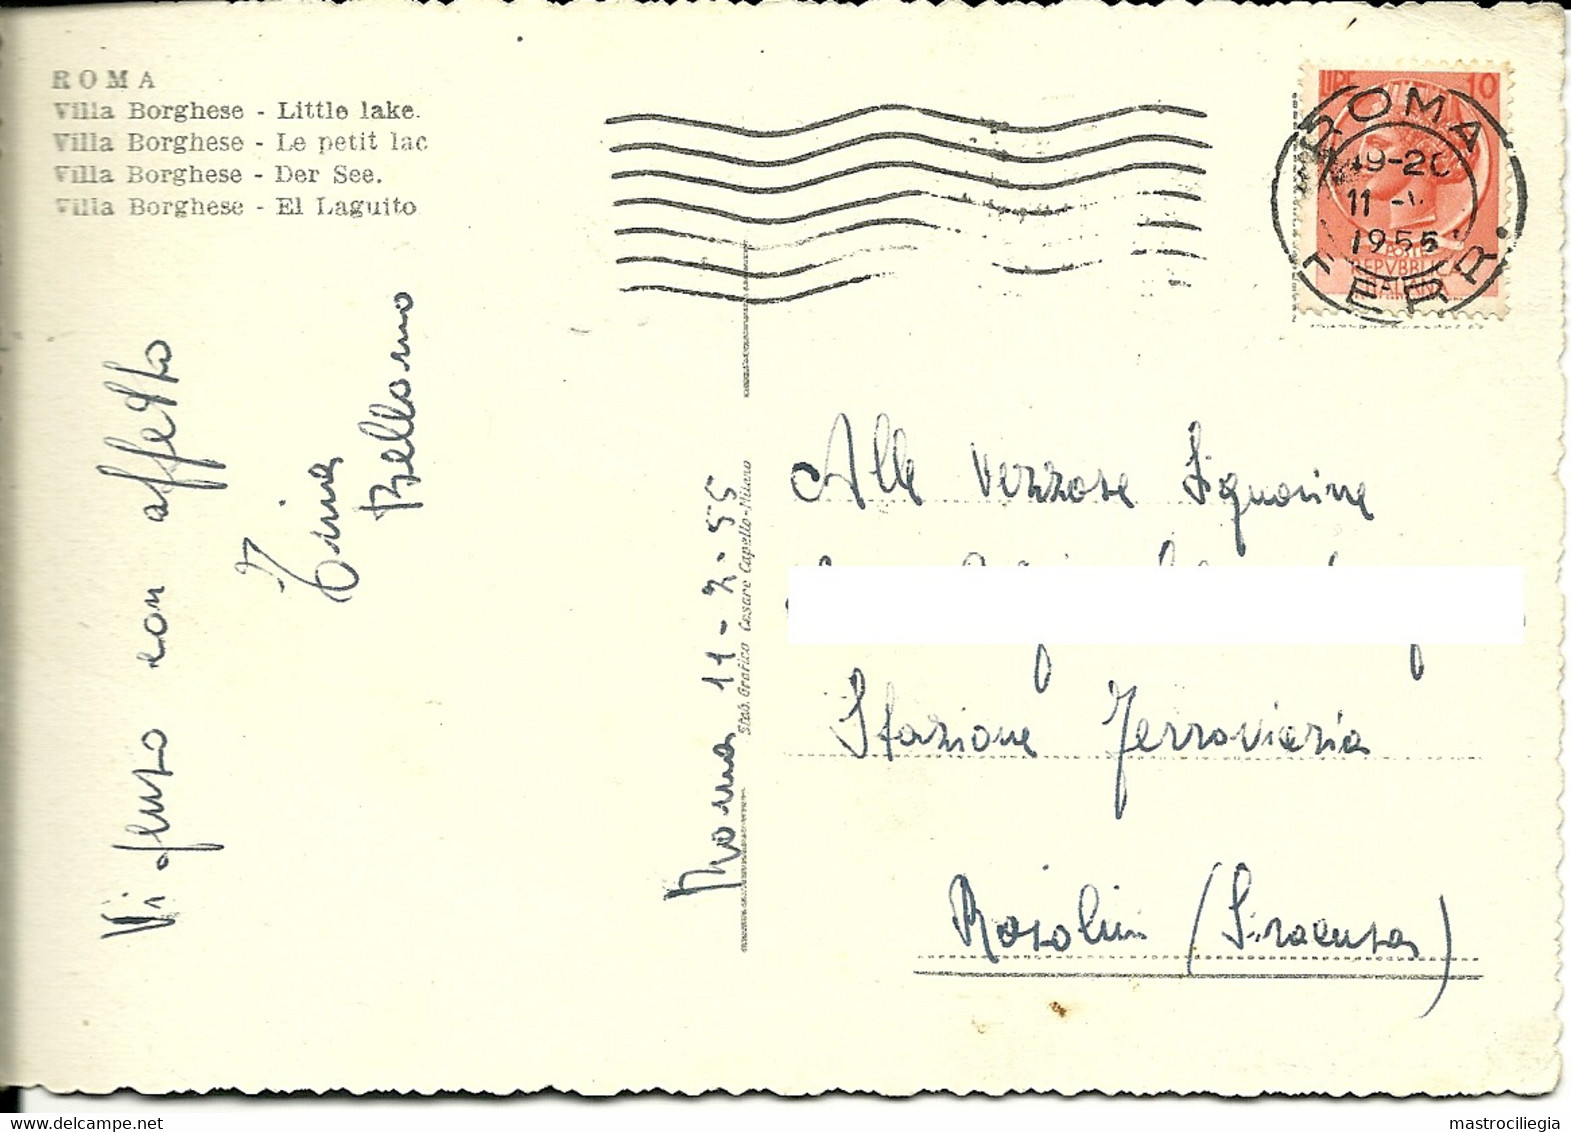 ROMA
Villa Borghese - Little lake.
Villa Borghese - Le petit lac
Villa Borghese - Der See.
Villa Borghese - El Laguito
LIRE 10
POSTE
REPVBBLICA
ITALIANA
ROMA
19-20
11 -
1955
FERR.
Vi penso con affetto
Tina
Bellomo
Roma 11-2-55
Stab. Grafico Cesare Capello-Milano
Alle Vezzose Signorine
Stazione Ferroviaria
Rosolini (Siracusa)
mastrociliegia